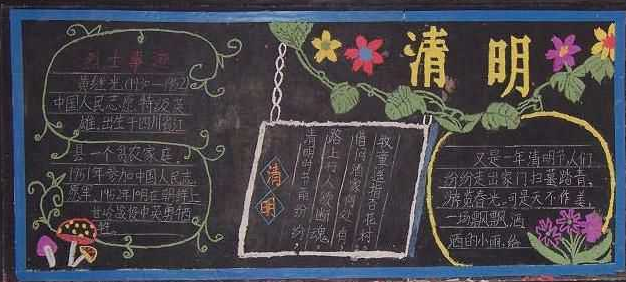 清明
烈士事迹
黄继光(1930-1952)
中国人民志愿特级英
雄,出生于四川省江
县一个贫农家庭,
1951年参加中国人民志
愿军,1952年10月在朝鲜上
甘岭战役中英勇牺
牲。
清明
清明时节雨纷纷
路上行人欲断魂
借问酒家何处有
牧童遥指杏花村
又是一年清明节,人们
纷纷走出家门扫墓踏青。
游览春光,可是天不作美,
一场飘飘洒
洒的小雨,给